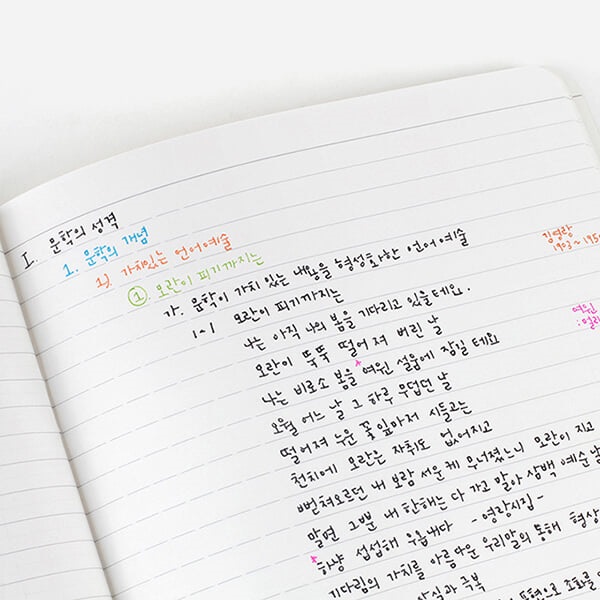 I. 문학의 성격
1. 문학의 개념
1). 가치있는 언어예술
①. 모란이 피기까지는
가. 문학이 가치 있는 내용을 형성화한 언어 예술
1-1 모란이 피기까지는
나는 아직 나의 봄을 기다리고 있을테요.
모란이 뚝뚝 떨어져 버린 날
나는 비로소 봄을 여윈 설움에 잠길 테요
오월 어느 날 그 하루 무덥던 날
떨어져 누운 꽃 잎마저 시들고는
천지에 모란은 자취도 없어지고
뻗쳐오르던 내 보람 서운케 무너졌느니 모란이 지고
말면 그뿐 내 한해는 다 가고 말아 삼백 예순 날
하냥 섭섭해 우읍내다 -영랑시집-
기다림의 가치를 아름다운 우리말의 통해 형상
김영랑
1903~195
여윈